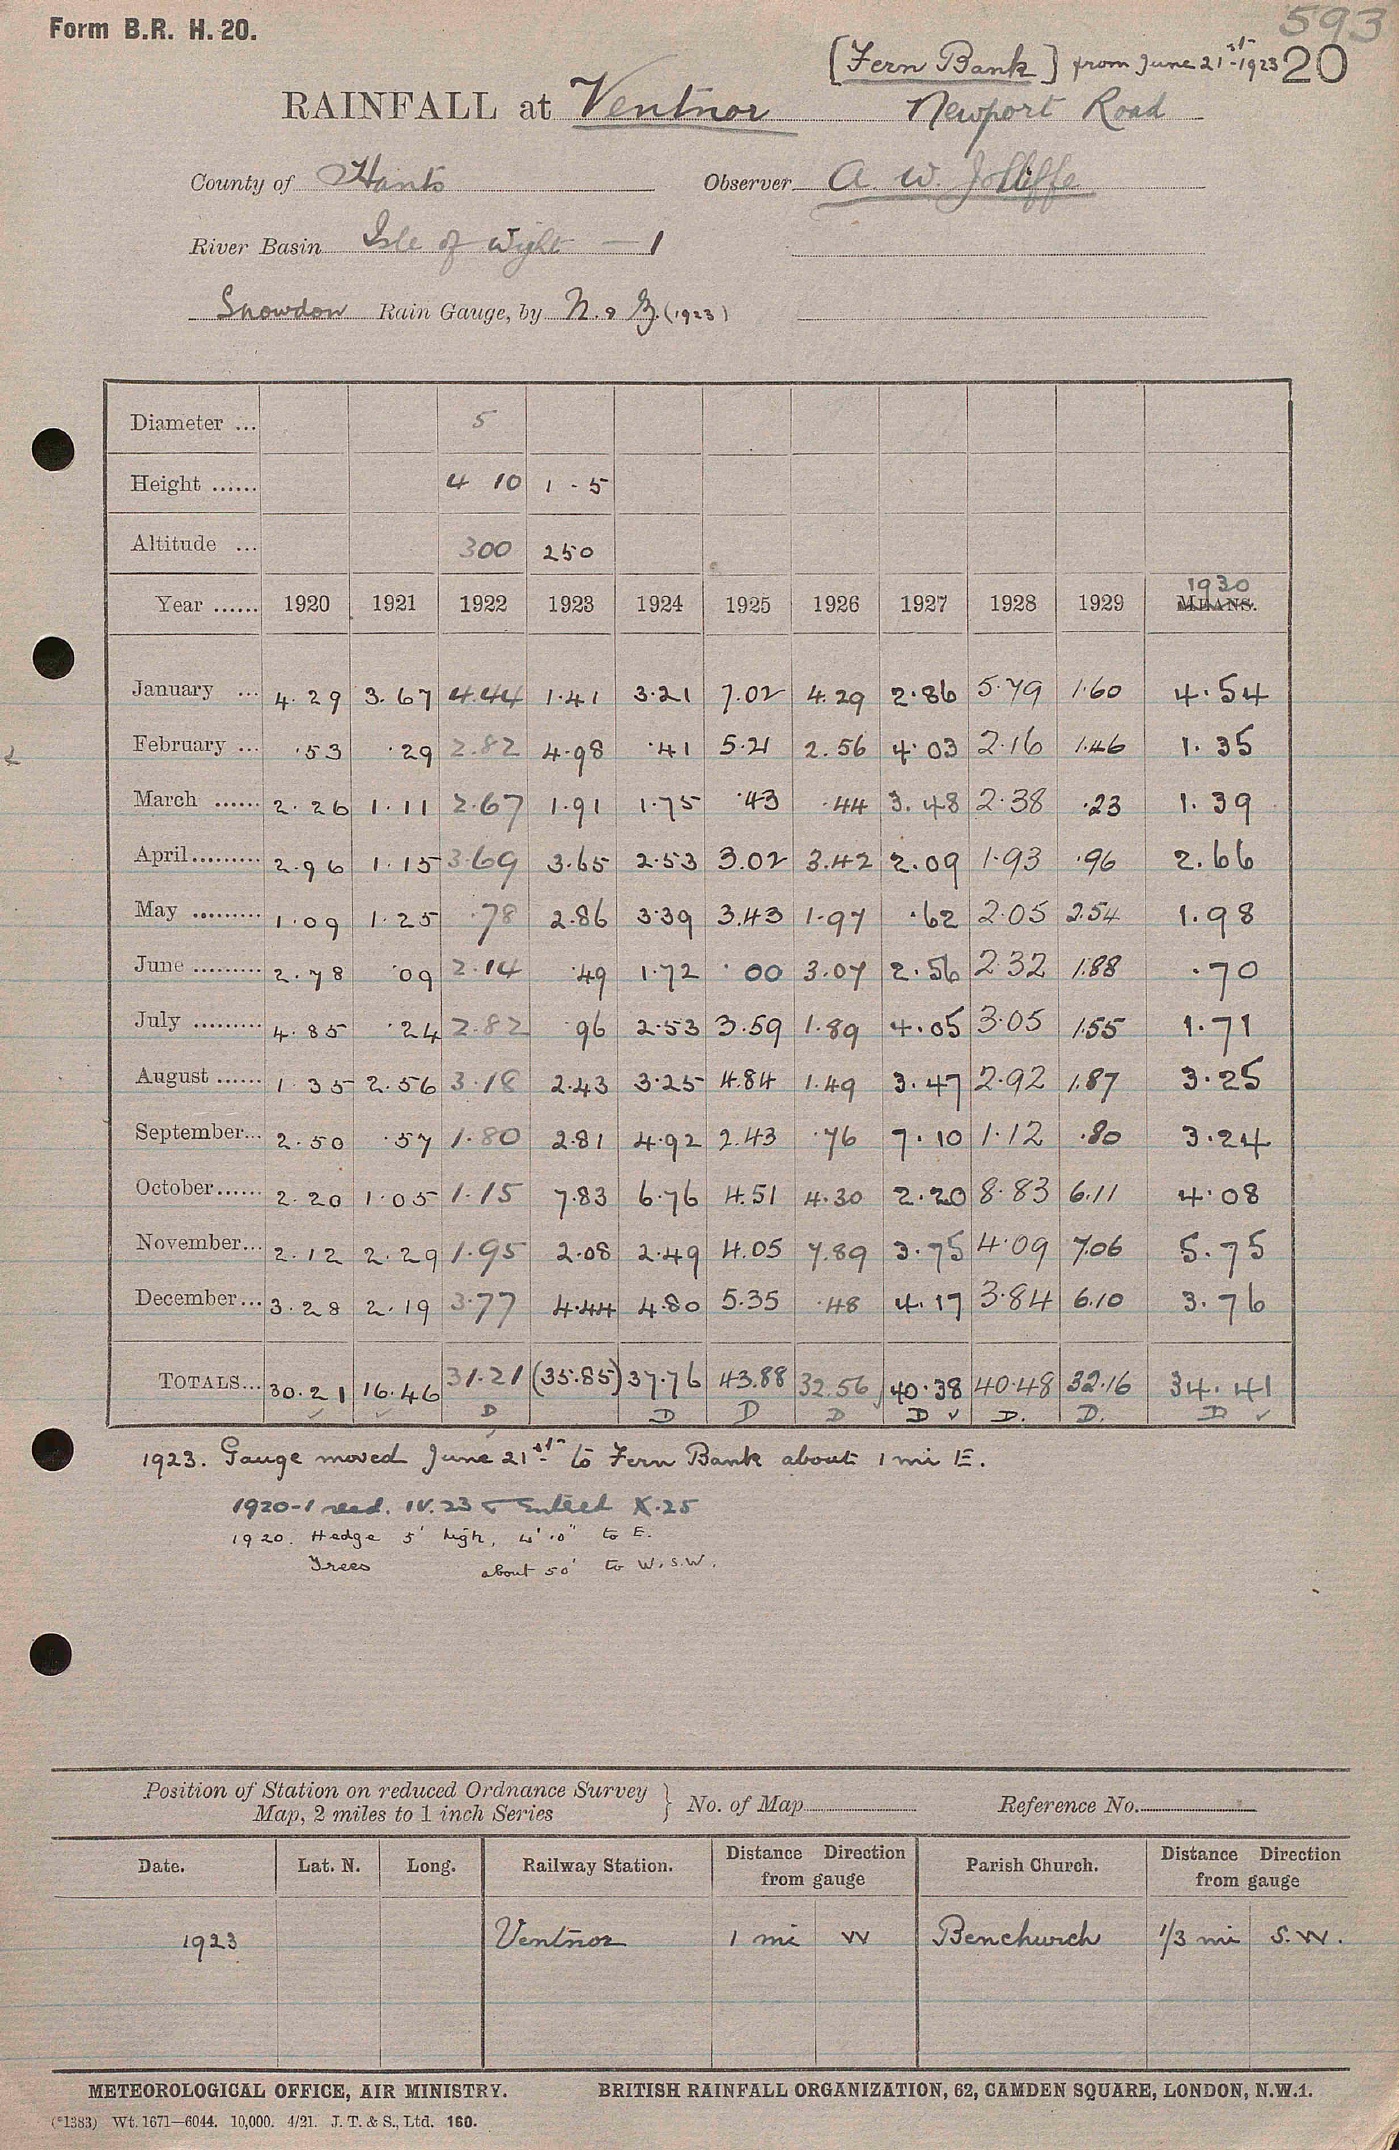 Form B.R. H. 20.
593
[Fern Bank] from June 21st 1923 20
RAINFALL at Ventnor Newport Road
County of Hants Observer A. W. Jolliffe
River Basin Isle of Wight — 1
Snowdon Rain Gauge, by N. & Z. (1923)
Diameter ... 5
Height ...... 4 10 1 - 5
Altitude ... 300 250
1930
Year ...... 1920 1921 1922 1923 1924 1925 1926 1927 1928 1929 MEANS.
January ... 4.29 3.67 4.44 1.41 3.21 7.02 4.29 2.86 5.79 1.60 4.54
February ... .53 .29 2.82 4.98 .41 5.21 2.56 4.03 2.16 1.46 1.35
March ...... 2.26 1.11 2.67 1.91 1.75 .43 .44 3.48 2.38 .23 1.39
April......... 2.96 1.15 3.69 3.65 2.53 3.02 3.42 2.09 1.93 .96 2.66
May ......... 1.09 1.25 .78 2.86 3.39 3.43 1.97 .62 2.05 2.54 1.98
June ......... 2.78 .09 2.14 .49 1.72 .00 3.07 2.56 2.32 1.88 .70
July ......... 4.85 .24 2.82 .96 2.53 3.59 1.89 4.05 3.05 1.55 1.71
August ...... 1.35 2.56 3.18 2.43 3.25 4.84 1.49 3.47 2.92 1.87 3.25
September... 2.50 .57 1.80 2.81 4.92 2.43 .76 7.10 1.12 .80 3.24
October...... 2.20 1.05 1.15 7.83 6.76 4.51 4.30 2.20 8.83 6.11 4.08
November... 2.12 2.29 1.95 2.08 2.49 4.05 7.89 3.75 4.09 7.06 5.75
December... 3.28 2.19 3.77 4.44 4.80 5.35 .48 4.17 3.84 6.10 3.76
TOTALS... 30.21 16.46 31.21 (35.85) 37.76 43.88 32.56 40.38 40.48 32.16 34.41
✓ ✓ D D D D D ✓ D. D. D ✓
1923. Gauge moved June 21st to Fern Bank about 1 mi E.
1920-1 recd. IV.23 & Entered X.25
1920. Hedge 5' high, 4' 10" to E.
Trees about 50' to W.S.W.
Position of Station on reduced Ordnance Survey
Map, 2 miles to 1 inch Series } No. of Map Reference No.
Date. Lat. N. Long. Railway Station. Distance Direction from gauge Parish Church. Distance Direction from gauge
1923 Ventnor 1 mi W Bonchurch 1/3 mi S.W.
METEOROLOGICAL OFFICE, AIR MINISTRY. BRITISH RAINFALL ORGANIZATION, 62, CAMDEN SQUARE, LONDON, N.W.1.
(*1383) Wt. 1671—6044. 10,000. 4/21. J. T. & S., Ltd. 160.